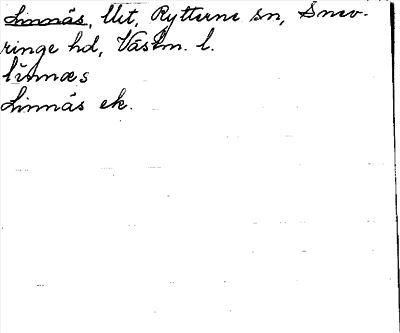 Linnäs, Utt, Rytterne sn, Snev-
ringe hd, Västm. l.
linnæs
Linnäs ek.